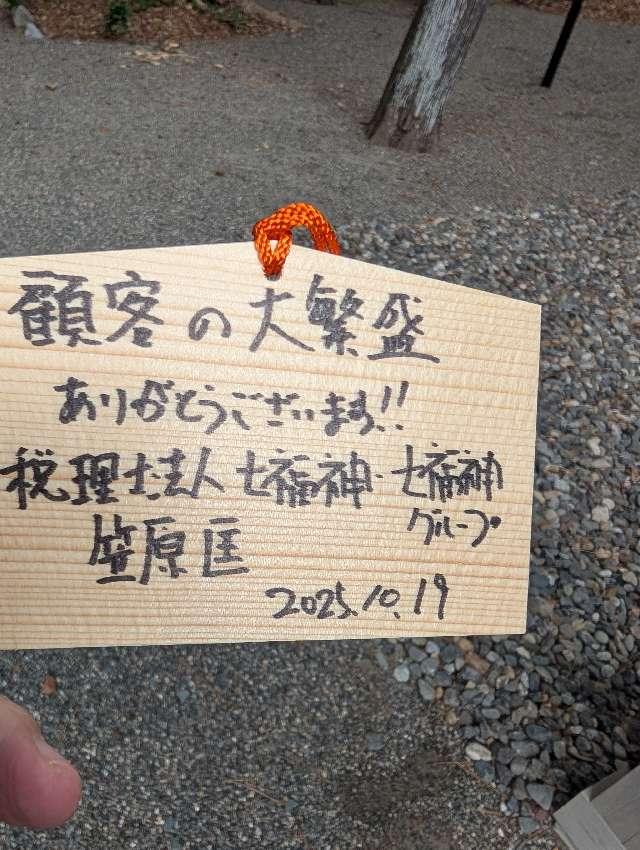 顧客の大繁盛
ありがとうございます!!
税理士法人 七福神・七福神
グループ
笠原匡
2025.10.19